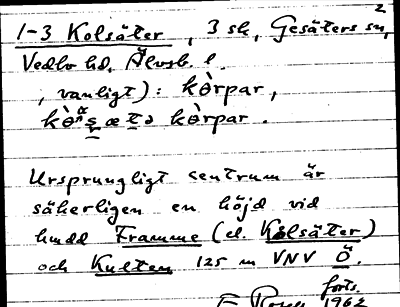 2
1-3 Kolsäter, 3 sk, Gesäters sn,
Vedbo hd, Älvsb. l.
, vanligt): kòrpar,
kòrpar.
Ursprungligt centrum är
säkerligen en höjd vid
hudd Framme (cl. Kolsäter)
och Kulten 125 m VNV Ö.
forts.
1962